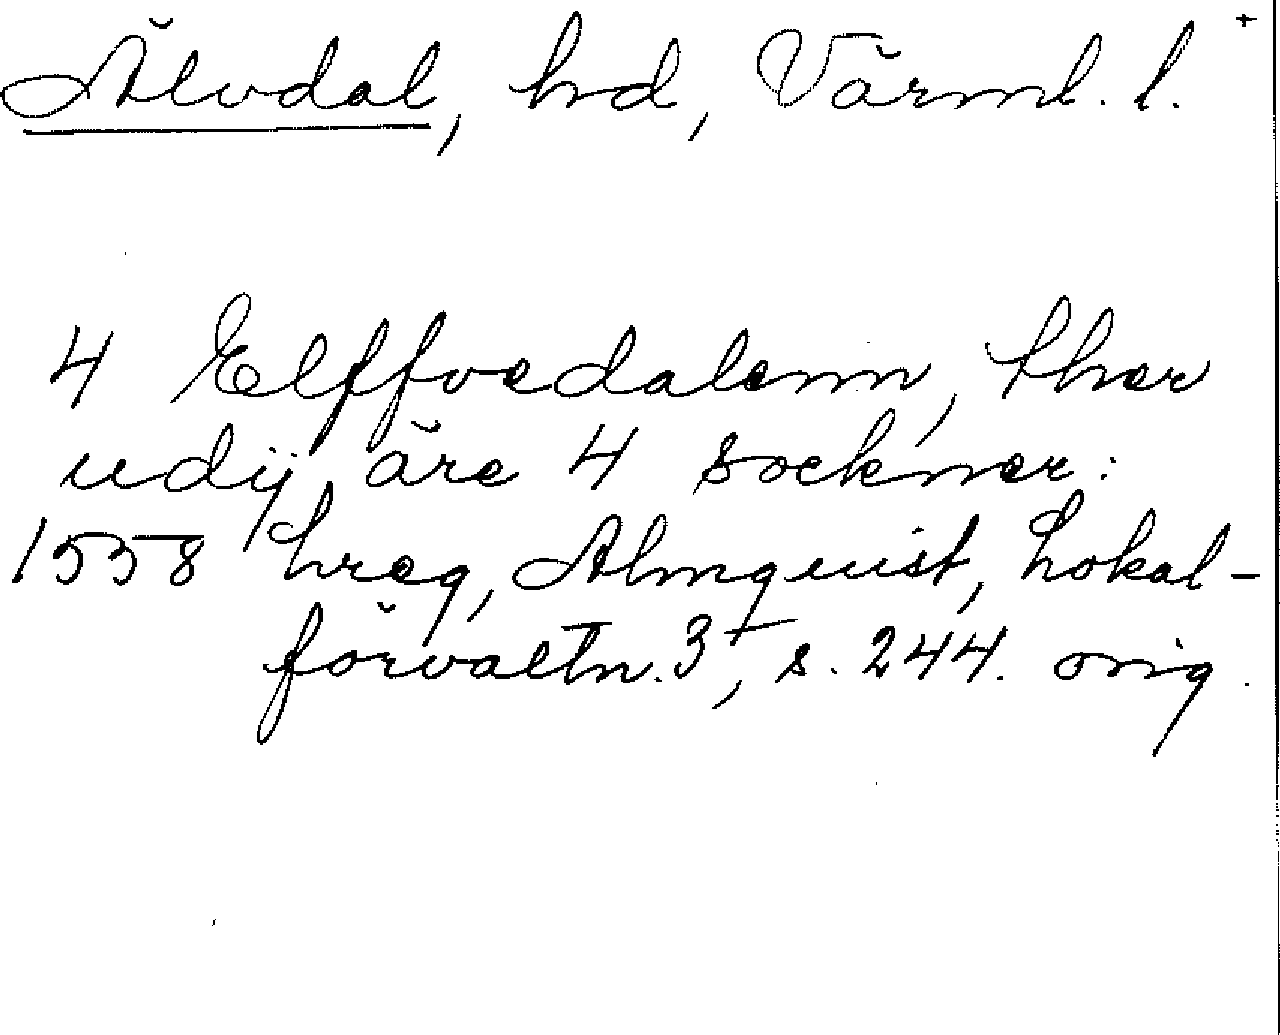 Älvdal, hd, Värml. l. +
4 Elffvedalenn, ther
udij äre 4 sockner:
1558 hreg, Almquist, Lokal-
förvaltn. 3+, s. 244. orig.